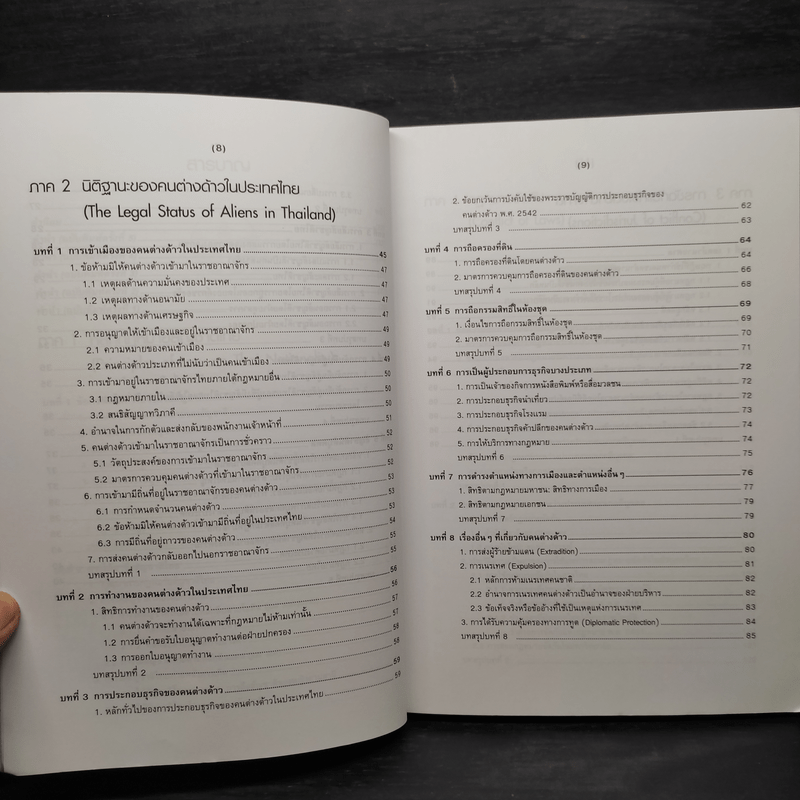 (8)
ภาค 2 นิติฐานะของคนต่างด้าวในประเทศไทย
(The Legal Status of Aliens in Thailand)
บทที่ 1 การเข้าเมืองของคนต่างด้าวในประเทศไทย 45
1. ข้อห้ามมิให้คนต่างด้าวเข้ามาในราชอาณาจักร 47
1.1 เหตุผลด้านความมั่นคงของประเทศ 47
1.2 เหตุผลทางด้านอนามัย 47
1.3 เหตุผลทางด้านเศรษฐกิจ 47
2. การอนุญาตให้เข้าเมืองและอยู่ในราชอาณาจักร 49
2.1 ความหมายของคนเข้าเมือง 49
2.2 คนต่างด้าวประเภทที่ไม่นับว่าเป็นคนเข้าเมือง 49
3. การเข้ามาอยู่ในราชอาณาจักรไทยภายใต้กฎหมายอื่น 50
3.1 กฎหมายภายใน 50
3.2 สนธิสัญญาทวิภาคี 50
4. อำนาจในการกักตัวและส่งกลับของพนักงานเจ้าหน้าที่ 51
5. คนต่างด้าวเข้ามาในราชอาณาจักรเป็นการชั่วคราว 52
5.1 วัตถุประสงค์ของการเข้ามาในราชอาณาจักร 52
5.2 มาตรการควบคุมคนต่างด้าวที่เข้ามาในราชอาณาจักร 52
6. การเข้ามามีถิ่นที่อยู่ในราชอาณาจักรของคนต่างด้าว 53
6.1 การกำหนดจำนวนคนต่างด้าว 53
6.2 ข้อห้ามมิให้คนต่างด้าวเข้ามามีถิ่นที่อยู่ในประเทศไทย 54
6.3 การมีถิ่นที่อยู่ถาวรของคนต่างด้าว 55
7. การส่งคนต่างด้าวกลับออกไปนอกราชอาณาจักร 55
บทสรุปบทที่ 1 56
บทที่ 2 การทำงานของคนต่างด้าวในประเทศไทย 56
1. สิทธิการทำงานของคนต่างด้าว 57
1.1 คนต่างด้าวจะทำงานได้เฉพาะที่กฎหมายไม่ห้ามเท่านั้น 57
1.2 การยื่นคำขอรับใบอนุญาตทำงานต่อฝ่ายปกครอง 58
1.3 การออกใบอนุญาตทำงาน 58
บทสรุปบทที่ 2 59
บทที่ 3 การประกอบธุรกิจของคนต่างด้าว 59
1. หลักทั่วไปของการประกอบธุรกิจของคนต่างด้าวในประเทศไทย
(9)
2. ข้อยกเว้นการบังคับใช้ของพระราชบัญญัติการประกอบธุรกิจของ
คนต่างด้าว พ.ศ. 2542 62
บทสรุปบทที่ 3 63
บทที่ 4 การถือครองที่ดิน 64
1. การถือครองที่ดินโดยคนต่างด้าว 64
2. มาตรการควบคุมการถือครองที่ดินของคนต่างด้าว 66
บทสรุปบทที่ 4 68
บทที่ 5 การถือกรรมสิทธิ์ในห้องชุด 69
1. เงื่อนไขการถือกรรมสิทธิ์ในห้องชุด 69
2. มาตรการควบคุมการถือกรรมสิทธิ์ในห้องชุด 70
บทสรุปบทที่ 5 71
บทที่ 6 การเป็นผู้ประกอบการธุรกิจบางประเภท 72
1. การเป็นเจ้าของกิจการหนังสือพิมพ์หรือสื่อมวลชน 72
2. การประกอบธุรกิจนำเที่ยว 72
3. การประกอบธุรกิจโรงแรม 73
4. การประกอบธุรกิจค้าปลีกของคนต่างด้าว 74
5. การให้บริการทางกฎหมาย 74
บทสรุปบทที่ 6 75
บทที่ 7 การดำรงตำแหน่งทางการเมืองและตำแหน่งอื่น ๆ 76
1. สิทธิตามกฎหมายมหาชน: สิทธิทางการเมือง 77
2. สิทธิตามกฎหมายเอกชน 79
บทสรุปบทที่ 7 79
บทที่ 8 เรื่องอื่น ๆ ที่เกี่ยวกับคนต่างด้าว 80
1. การส่งผู้ร้ายข้ามแดน (Extradition) 80
2. การเนรเทศ (Expulsion) 81
2.1 หลักการห้ามเนรเทศคนชาติ 82
2.2 อำนาจการเนรเทศคนต่างด้าวเป็นอำนาจของฝ่ายบริหาร 82
2.3 ข้อเท็จจริงหรือข้ออ้างที่ใช้เป็นเหตุแห่งการเนรเทศ 83
3. การได้รับความคุ้มครองทางการทูต (Diplomatic Protection) 84
บทสรุปบทที่ 8 85